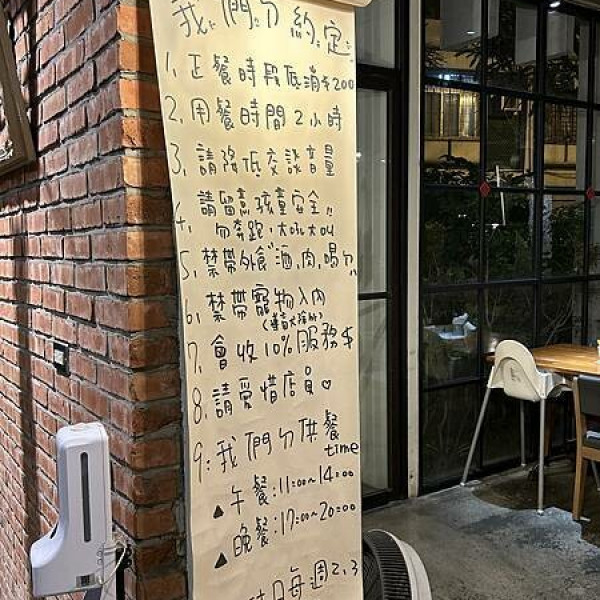 我們ㄉ約定
1. 正餐時段低消$200
2. 用餐時間2小時
3. 請降低交談音量
4. 請留意孩童安全!!
勿奔跑,大吼大叫
5. 禁帶外食"酒,肉,喝ㄉ
6. 禁帶寵物入內
(導盲犬除外)
7. 會收10%服務$
8. 請愛惜店員♡
9. 我們ㄉ供餐
time
▲午餐:11:00~14:00
▲晚餐:17:00~20:00
日每週2,3